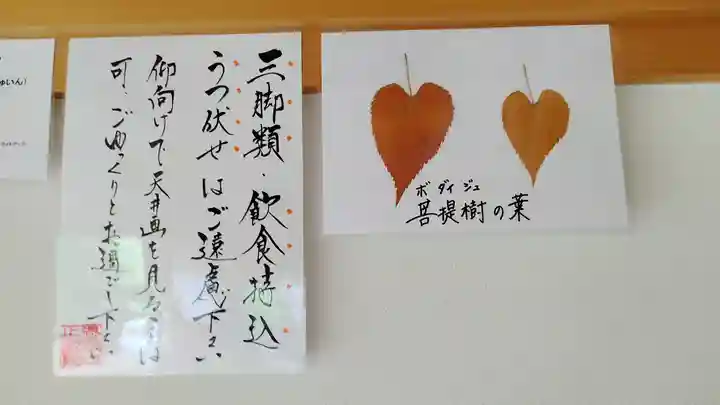 三脚類・飲食持込
うつ伏せはご遠慮下さい
仰向けで天井画を見ることは
可・ごゆっくりとお過ごし下さい
ボダイジュ
菩提樹の葉